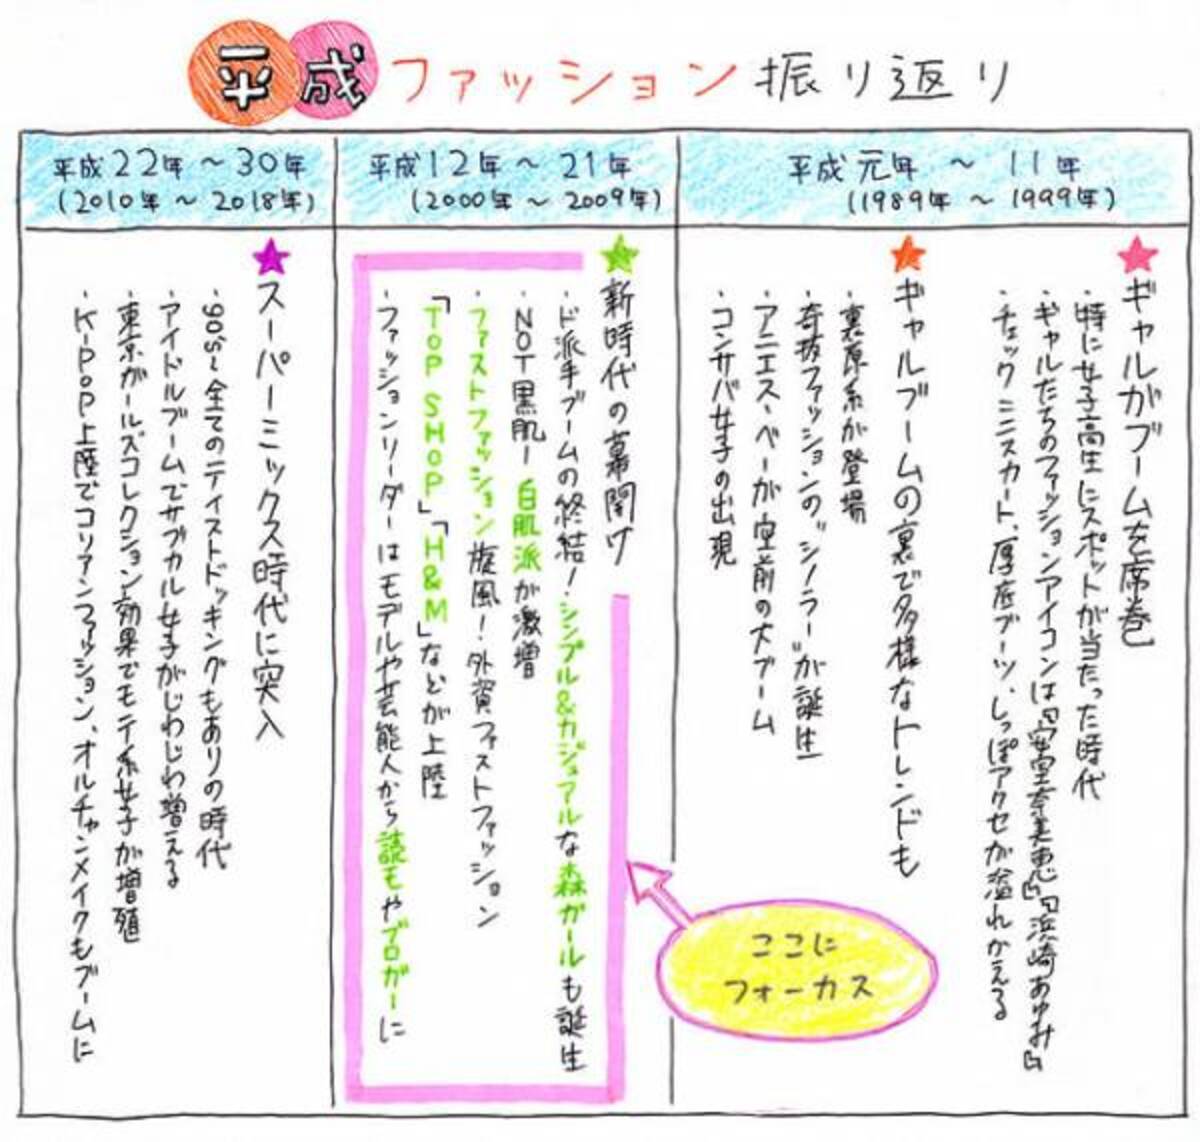 平成ファッション振り返り
平成元年 ～ 11年
(1989年 ～ 1999年)
★ギャルがブームを席巻
・特に女子高生にスポットが当たった時代
・ギャルたちのファッションアイコンは「安室奈美恵」「浜崎あゆみ」
・チェックミニスカート、厚底ブーツ、しっぽアクセが溢れかえる
★ギャルブームの裏で多様なトレンドも
・裏原系が登場
・奇抜ファッションの“シノラー”が誕生
・アニエス・ベーが空前の大ブーム
・コンサバ女子の出現
平成12年 ～ 21年
(2000年 ～ 2009年)
★新時代の幕開け
・ド派手ブームの終結！シンプル&カジュアルな森ガールも誕生
・NOT黒肌！白肌派が激増
・ファストファッション旋風！外資ファストファッション
「TOP SHOP」「H&M」などが上陸
・ファッションリーダーはモデルや芸能人から読モやブロガーに
ここに
フォーカス
平成22年 ～ 30年
(2010年 ～ 2018年)
★スーパーミックス時代に突入
・90s～全てのテイストドッキングもありの時代
・アイドルブームでサブカル女子がじわじわ増える
・東京ガールズコレクション効果でモテ系女子が増殖
・K-POP上陸でコリアンファッション、オルチャンメイクもブームに